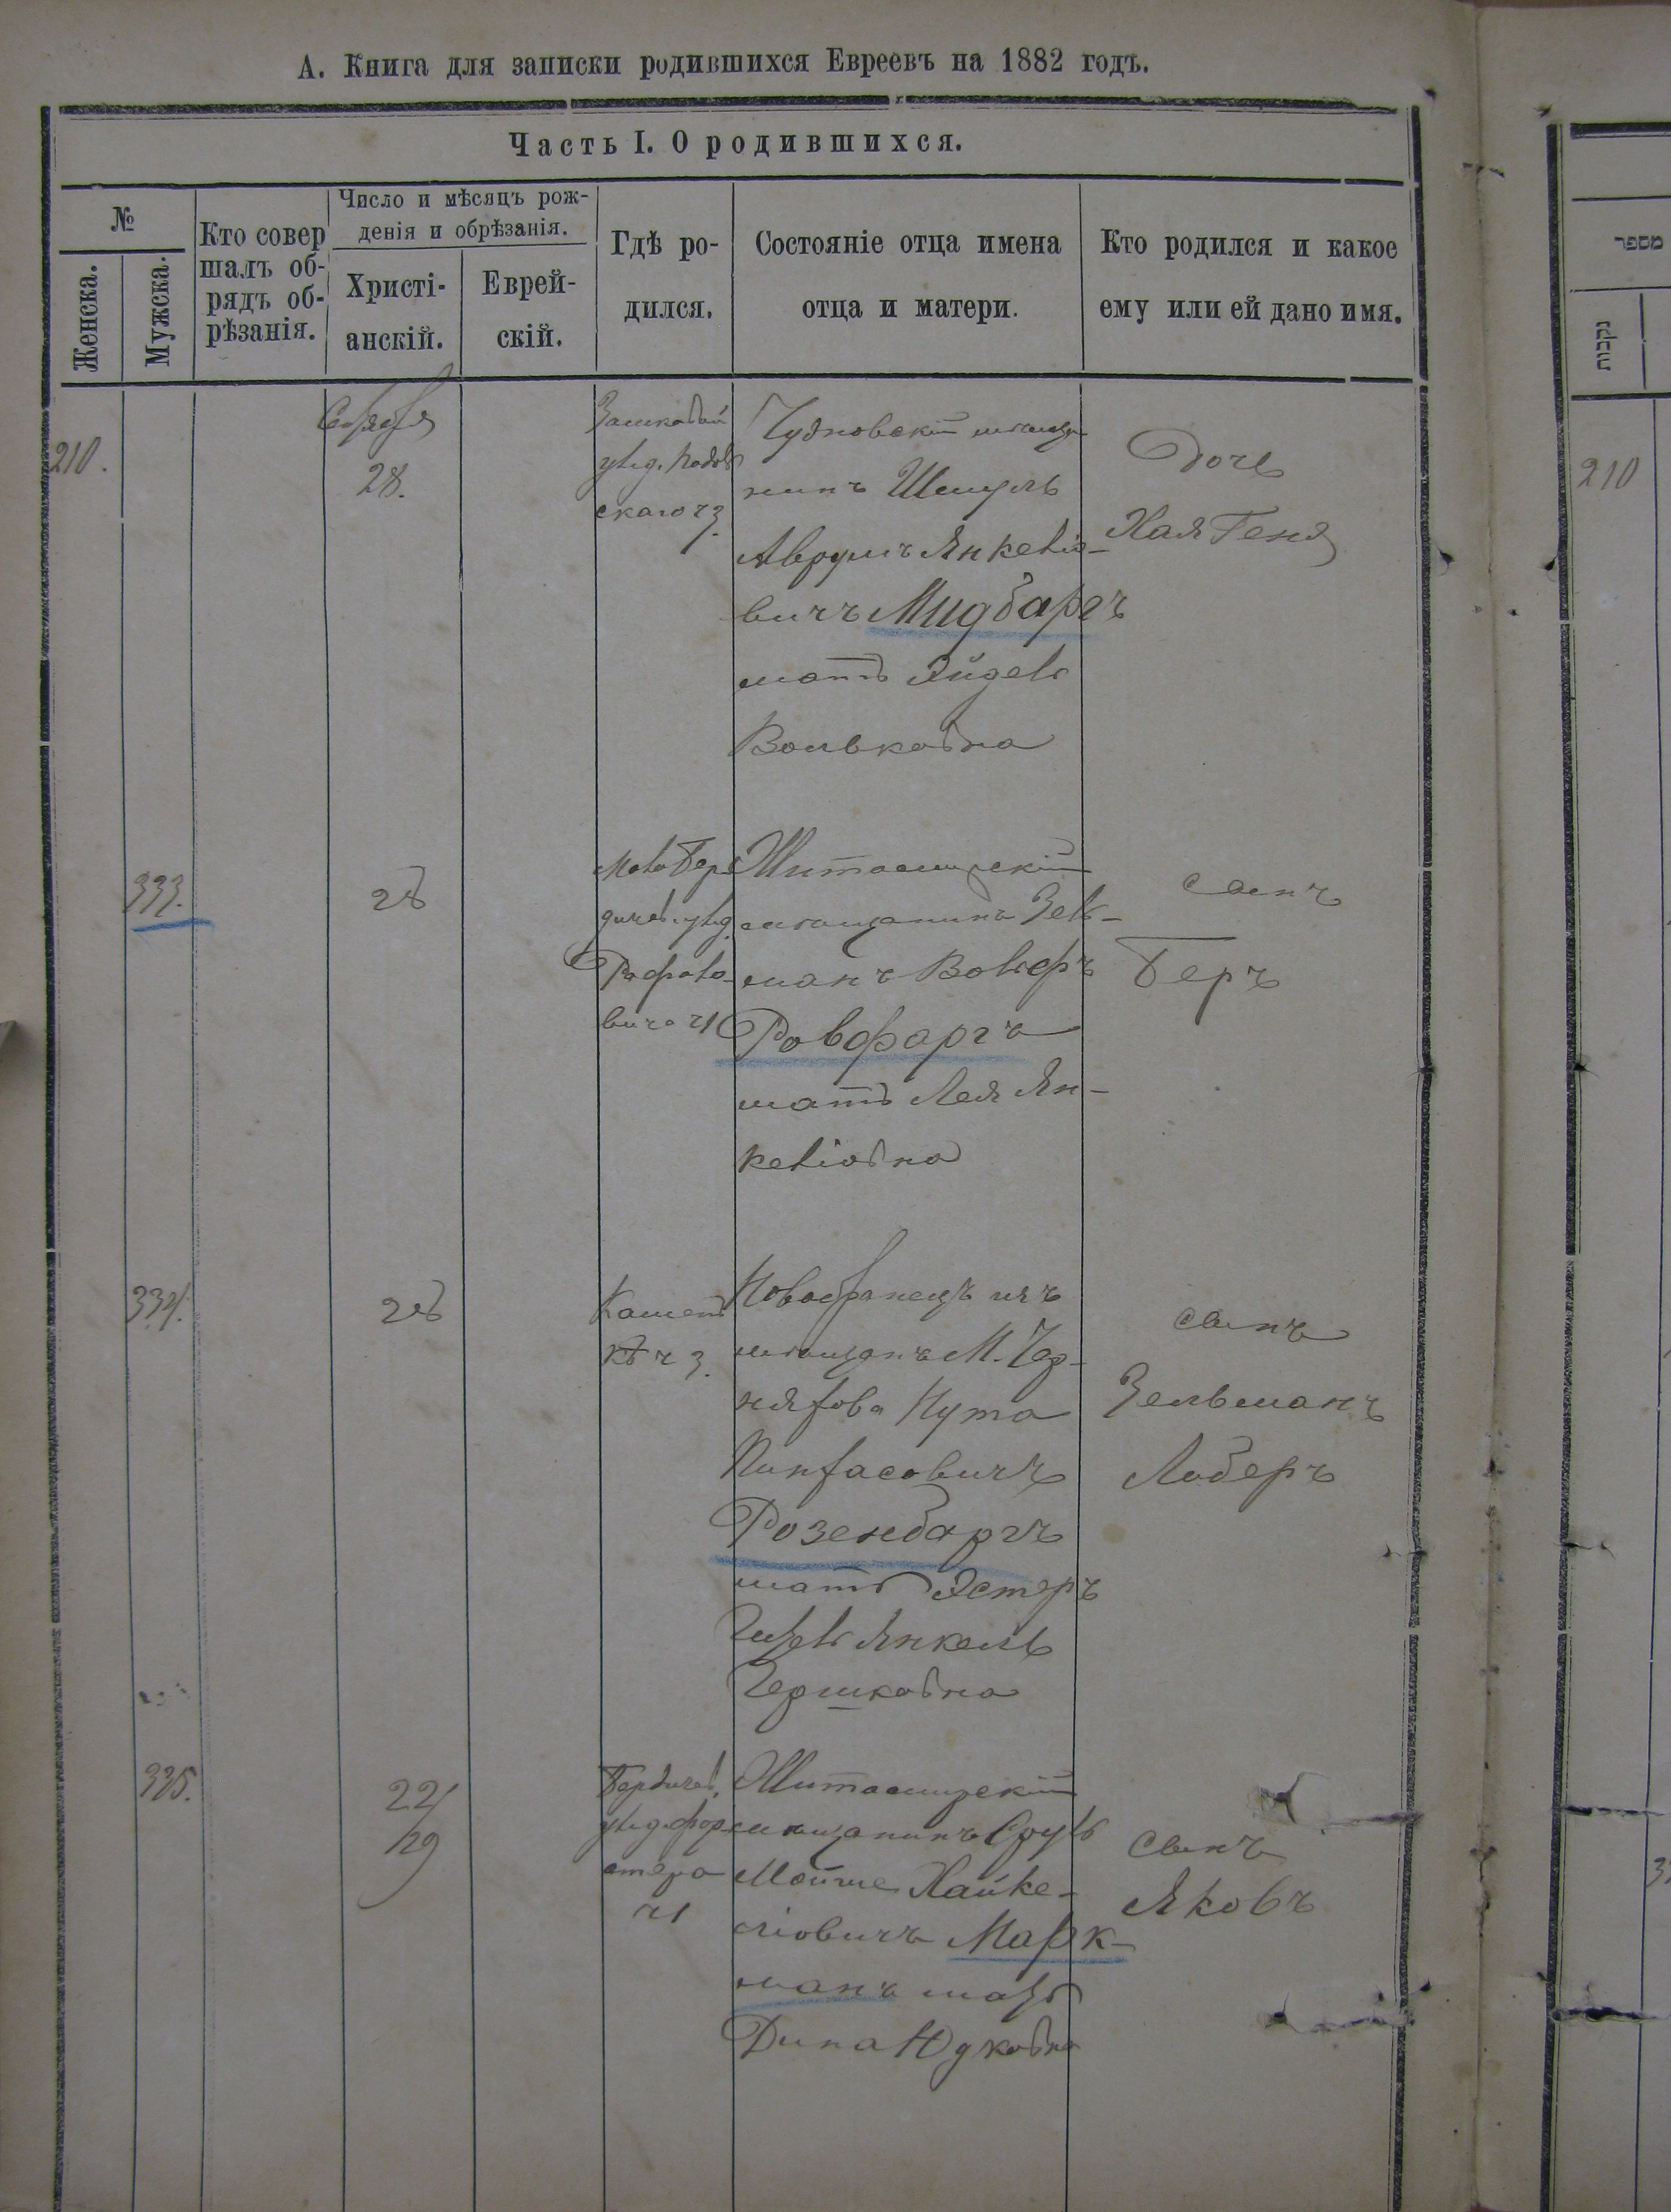 А. Книга для записки родившихся Евреевъ на 1882 годъ.
Часть I. О родившихся.
№
Женска.
Мужска.
Кто совер
шалъ об-
рядъ об-
рѣзанія.
Число и мѣсяцъ рож-
денія и обрѣзанія.
Христі-
анскій.
Еврей-
скій.
Гдѣ ро-
дился.
Состояніе отца имена
отца и матери.
Кто родился и какое
ему или ей дано имя.
210.
28.
скаго ч 3.
Чудновскій мѣща-
нинъ Шмуль
Аврумъ Янкеліо-
вичъ Мидбаргъ
мать Эйдель
Вольковна
Дочь
Хая Геня
333.
28
вича ч 1
Житомирскій
мѣщанинъ Зель-
манъ Вольфъ
Ровфаргъ
мать Лея Ян-
келіовна
сынъ
Беръ
334.
28
ч 3.
изъ
мѣщанъ М. Чер-
няхова Нута
Пинхасовичъ
Розенбаргъ
мать Эстеръ
Янкель
Гершковна
сынъ
Зельманъ
Либеръ
335.
22/
29
Бердичев.
ч 1
Житомирскій
мѣщанинъ Сруль
Мойше Хайке-
ліовичъ Марк-
манъ мать
Дина Юдковна
сынъ
Яковъ
מספר
נקבות
210